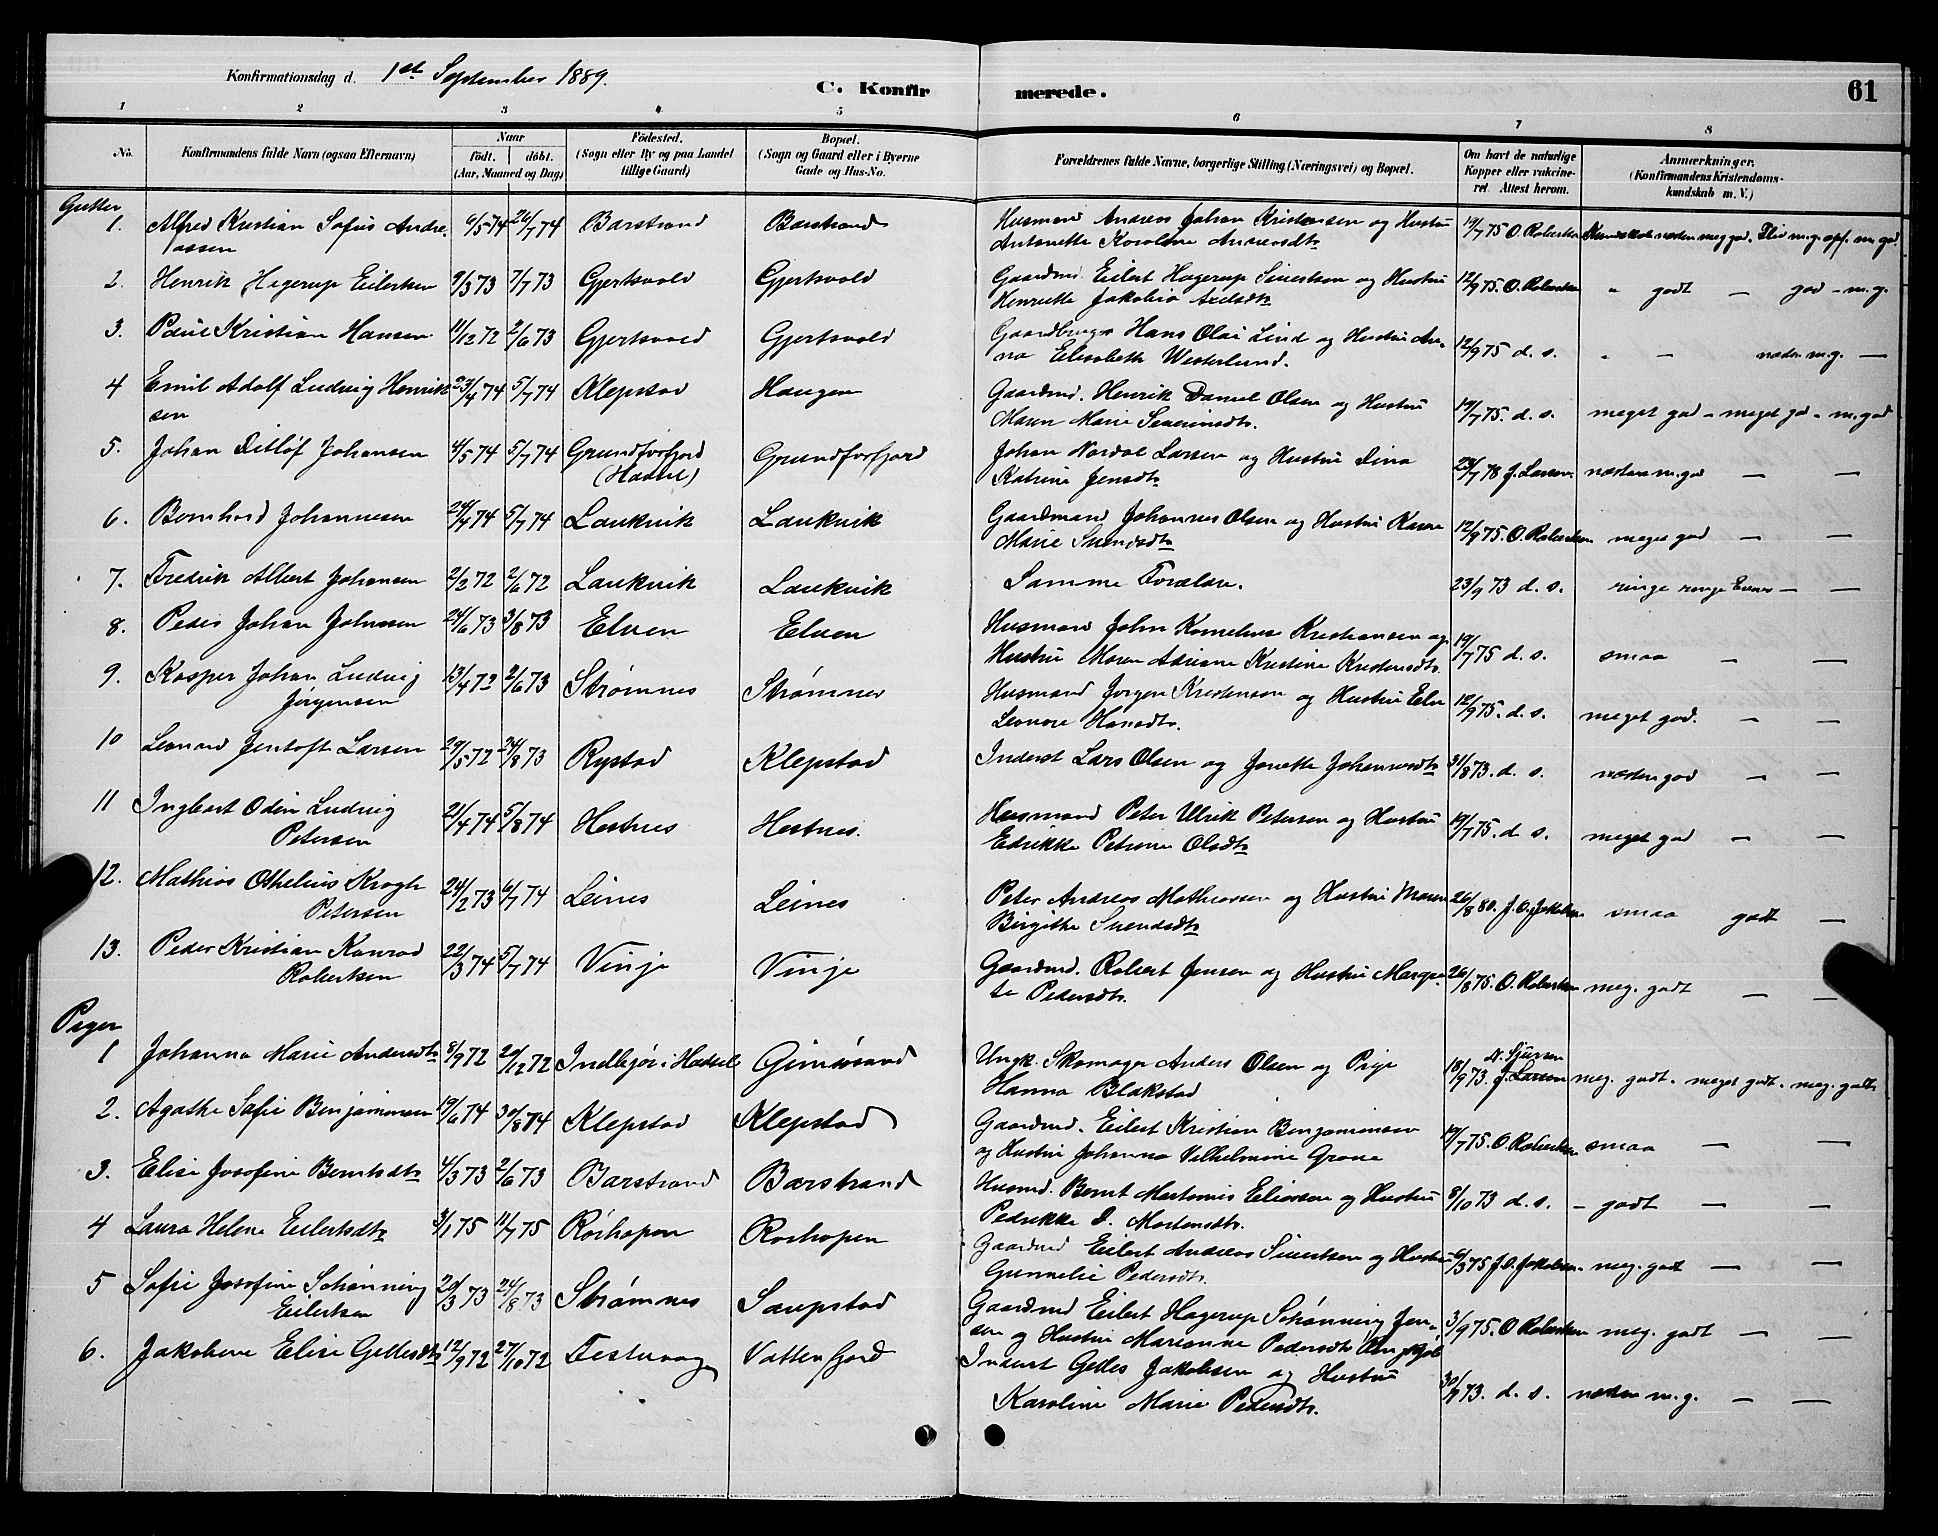 Konfirmationsdag d. 1st September 1889.
C. Konfirmerede.
61
1 2 3 4 5 6 7 8
No.
Konfirmandens fulde Navn (ogsaa Efternavn)
Naar
födt. döbt.
(Aar, Maaned og Dag)
Födested.
(Sogn eller By og paa Landet
tillige Gaard)
Bopæl.
(Sogn og Gaard eller i Byerne
Gade og Hus-No.
Forældrenes fulde Navne, borgerlige Stilling (Næringsvei) og Bopæl.
Om havt de naturlige
Kopper eller vakcine-
ret. Attest herom.
Anmærkninger.
(Konfirmandens Kristendoms-
kundskab m. V.)
Gutter
1. Alfred Kristian Sofus Andre- 6/5 74 26/7 74 Barstrand Barstrand Husmand Andreas Johan Kristensen og Hustru 19/7 75 O. Robertsen
assen Antonette Karoline Anrendtsdtr
2. Henrik Hagerup Eilertsen 9/3 73 7/7 73 Gjertsvold Gjertsvold Gaardmd. Eilert Hagerup Sivertsen og Hustru 12/9 75. O. Robertsen " godt — god - m.g.
Henrette Jakobia Axelsdtr
3. Paul Kristian Hansen 11/12 72 2/6 73 Gjertsvold Gjertsvold Gaardbruger Hans Olai Lind og Hustru An- 12/9 75 d. s. " — næsten m.g. —
na Elisabeth Westerlund.
4 Emil Adolf Ludvig Henrik 23/4 74 5/7 74 Klepstad Haugen Gaardmd. Henrik Daniel Olsen og Hustru 19/7 75. d. s. meget god - meget god - m. god
sen Maren Marie Severinsdtr.
5. Johan Ditløf Johansen 4/5 74 5/7 74 Grundforfjord Grundforfjord Johan Nordal Larsen og Hustru Dina 23/7 78 J. Larsen. næsten m. god — —
(Hadsel) Katrine Jensdtr
6. Bernhard Johannesen 24/4 74 5/7 74 Laukvik Laukvik Gaardmand Johannes Olsen og Hustru Karen 12/9 75. O. Robertsen meget god — —
Marie Svendsdtr
7. Fredrik Albert Johansen 2/2 72 2/6 72 Laukvik Laukvik Samme Forældre. 23/9 73 d. s. ringe ringe Evner — —
8. Peder Johan Johnsen 24/6 73 3/8 73 Elven Elven Husmand John Kornelius Kristiansen og 19/7 75 d. s. smaa — —
Hustru Maren Adriane Kristine Kristensdtr.
9. Kasper Johan Ludvig 13/4 72 2/6 73 Strømnes Strømnes Husmand Jørgen Kristensen og Hustru Elen 12/9 75. d. s. meget god. — —
Jørgensen Leonore Hansdtr.
10 Leonard Jentoft Larsen 29/5 72 24/8 73 Rystad Klepstad Inderst Lars Olsen og Jonette Johannesdtr 31/8 73. d. s. næsten god — —
11 Ingbart Odin Ludvig 21/4 74 5/8 74 Hestnes Hestnes. Husmand Peter Ulrik Petersen og Hustru 19/7 75. d. s. meget god — —
Petersen Edrikke Petrine Olsdtr
12. Mathias Othelius Krogh 24/2 73 6/7 74 Leines Leines Peter Andreas Mathiassen og Hustru Maren 26/8 80. J. O. Jakobsen smaa godt —
Petersen Birgithe Svendsdtr
13. Peder Kristian Konrad 22/3 74 5/7 74 Vinje Vinje Gaardmd. Robert Jensen og Hustru Margre- 26/8 75. O. Robertsen meg. godt — —
Robertsen te Pedersdtr.
Piger
1 Johanna Marie Andersdtr 8/9 72 20/12 72 Indlejør i Hadsel Gimsøsand Ungk. Skomager Anders Olsen og Pige 18/9 73. J. Larsen meg. godt. meget godt. meg. godt
Hanna Blakstad
2. Agathe Sofie Benjaminsen 19/6 74 30/8 74 Klepstad Klepstad Gaardmd. Eilert Kristian Benjaminsen 19/7 75. O Robertsen smaa — —
og Hustru Johanna Vilhelmine Grove
3. Elise Josefine Berntsdtr 4/3 73 2/6 73 Barstrand Barstrand Husmd. Bernt Martinus Eliassen og Hustru 8/10 73 d. s. - godt — —
Pedrikke D. Mortensdtr.
4 Laura Helene Eilertsdtr 3/1 75 11/7 75 Rørhopen Rørhopen Gaardmd Eilert Andreas Sivertsen og Hustru 6/3 75 J. O. Jakobsen meg. godt — —
Gunnelie Pedersdtr.
5 Sofie Josefine Schønning 20/3 73 24/8 73 Strømnes Saupstad Gaardmd Eilert Hagerup Schønning Jen- 3/9 75. O Robertsen meg. godt — —
Eilertsen sen og Hustru Marianne Pedersdtr
6. Jakobine Elise Gettesdtr 12/9 72 27/10 72 Festevaag Vattenfjord Inderst Gettes Jakobsen og Hustru 30/9 73. d. s. næsten m. g. — —
Karoline Marie Pedersdtr.